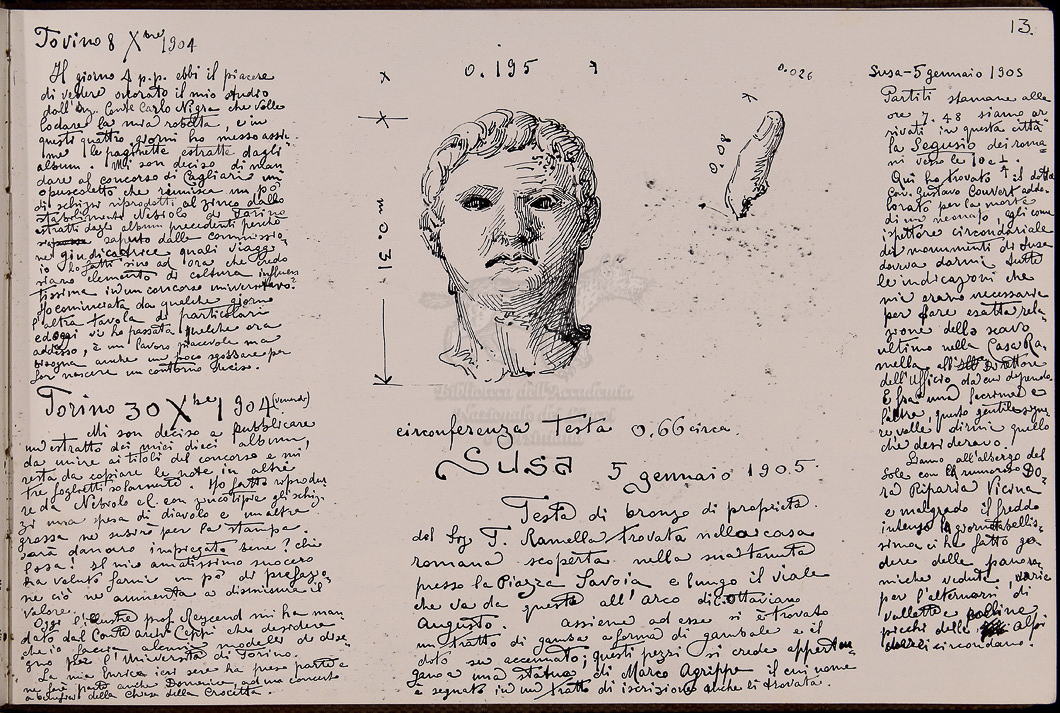 13.
Torino 8 Xbre 1904
Il giorno 4 p.p. ebbi il piacere
di vedere onorato il mio studio
dall'Ing. Conte Carlo Nigra che volle
lodare la mia robetta, e in
questi quattro giorni ho messo assie-
me le paginette estratte dagli
album. Mi son deciso di man
dare al concorso di Cagliari un
opuscoletto che riunisca un pò
di schizzi riprodotti al zinco dallo
stabilimento Nebiolo di Torino
estratti dagli album precedenti perchè
sapute dalla commissio-
ne giudicatrice quali viagg
io ho fatti sino ad ora che credo
siano elemento di coltura
tissima in un concorso universitario.
Ho cominciata da qualche giorno
l'altra tavola di particolari
ed oggi vi ho passata qualche ora
addosso, è un lavoro piacevole ma
bisogna anche un poco sgobbare per
far nascere un contorno deciso.
Torino 30 Xbre 1904 (venerdì)
Mi son deciso a pubblicare
un estratto dei miei dieci album,
da unire ai titoli del concorso e mi
resta da copiare le note in altri
tre foglietti solamente. Ho fatto riprodur
re da Nebiolo e C. con zincotipie gli schiz-
zi una spesa di diavolo e un'altra
grossa ne subirò per la stampa.
Sarà danaro impiegato bene? chi
losa! Il mio amatissimo suocero
ha voluto farmi un pò di prefazio-
ne ciò ne aumenta a dismisura il
valore.
Oggi l'illustre prof Reycend mi ha man
dato dal Conte arch Ceppi che desidera
che io faccia alcuni modelli di dise-
gno per l'Università di Torino.
La mia Enrica ieri sera ha preso parte e
ne fece parte anche Domenica, ad un concerto
a beneficio della Chiesa della Crocetta.
0.195
0.026
0.08
m 0.31
circonferenza testa 0.66 circa.
Susa 5 gennaio 1905.
Testa di bronzo di proprietà
del Sig. T. Ramella trovata nella casa
romana scoperta nella sua tenuta
presso la Piazza Savoia e lungo il viale
che va da questa all'arco di Ottaviano
Augusto. assieme ad esse si è trovato
un tratto di gamba a forma di gambale e il
dito su accennato; questi pezzi si crede apparten
gano a una statua di Marco Agrippa il cui nome
è segnato in un tratto di iscrizione anche li trovata.
Susa - 5 gennaio 1905
Partiti stamane alle
ore 7.48 siamo ar
rivati in questa città
la Segusio dei roma-
ni verso le 10 e 1/4.
Qui ho trovato il dotto
Cav. Gustavo Couvert addo-
lorato per la morte
di un neonato, gli come
ispettore circondariale
dei monumenti di Susa
doveva darmi tutte
le indicazioni che
mi erano necessarie
per fare esatta rela-
zione dello scavo
ultimo nella Casa Ra-
mella all'Ill. Direttore
dell'Ufficio da cui dipendo
E fra una lacrima e
l'altra, questo gentile signo
re volle dirmi quello
che desideravo.
Siamo all'albergo del
Sole con la rumorosa Do-
ra Riparia vicina
e malgrado il freddo
intenso la giornata bellis-
sima ci ha fatto go
dere delle panora-
miche vedute, varie
per l'alternarsi di
vallette e colline
picchi delle alpi
che la circondano.
Biblioteca dell'Accademia
Nazionale dei Lincei
e Corsiniana